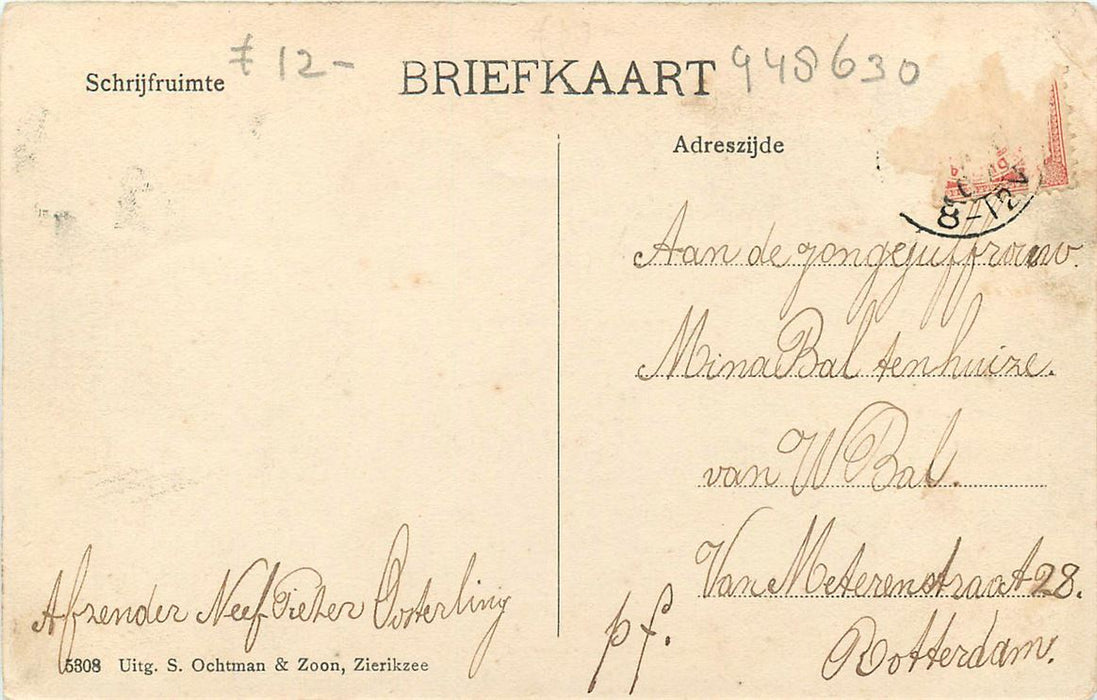 Schrijfruimte
ƒ 12-
BRIEFKAART
948630
Adreszijde
8-12V
Aan de jongejuffrouw.
Mina Bal tenhuize.
van W Bal.
Van Meterenstraat 28.
Rotterdam.
p f.
Afzender Neef Pieter Oosterling
5308 Uitg. S. Ochtman & Zoon, Zierikzee